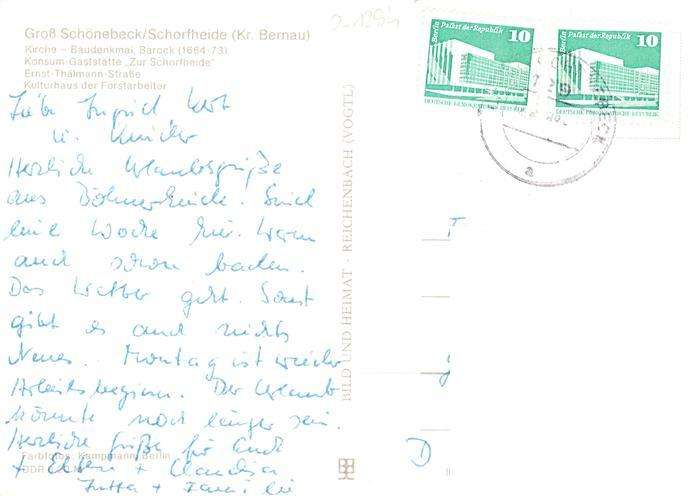 Groß Schönebeck/Schorfheide (Kr. Bernau)
Kirche – Baudenkmal, Barock (1664-73)
Konsum-Gaststätte „Zur Schorfheide"
Ernst-Thälmann-Straße
Kulturhaus der Forstarbeiter
Liebe Ingrid
u. Kinder
Herzliche Urlaubsgrüße
aus Böhmerheide. Sind
eine Woche hier. Waren
auch schon baden.
Das Wetter geht. Sonst
gibt es auch nichts
Neues. Montag ist wieder
Arbeitsbeginn. Der Urlaub
könnte noch länger sein.
Herzliche Grüße für Euch
+ Eltern + Claudia
Jutta +
Farbfotos: Kampmann, Berlin
DDR
BILD UND HEIMAT · REICHENBACH (VOGTL)
Berlin Palast der Republik 10
DEUTSCHE DEMOKRATISCHE REPUBLIK
Berlin Palast der Republik 10
DEUTSCHE DEMOKRATISCHE REPUBLIK
a
D